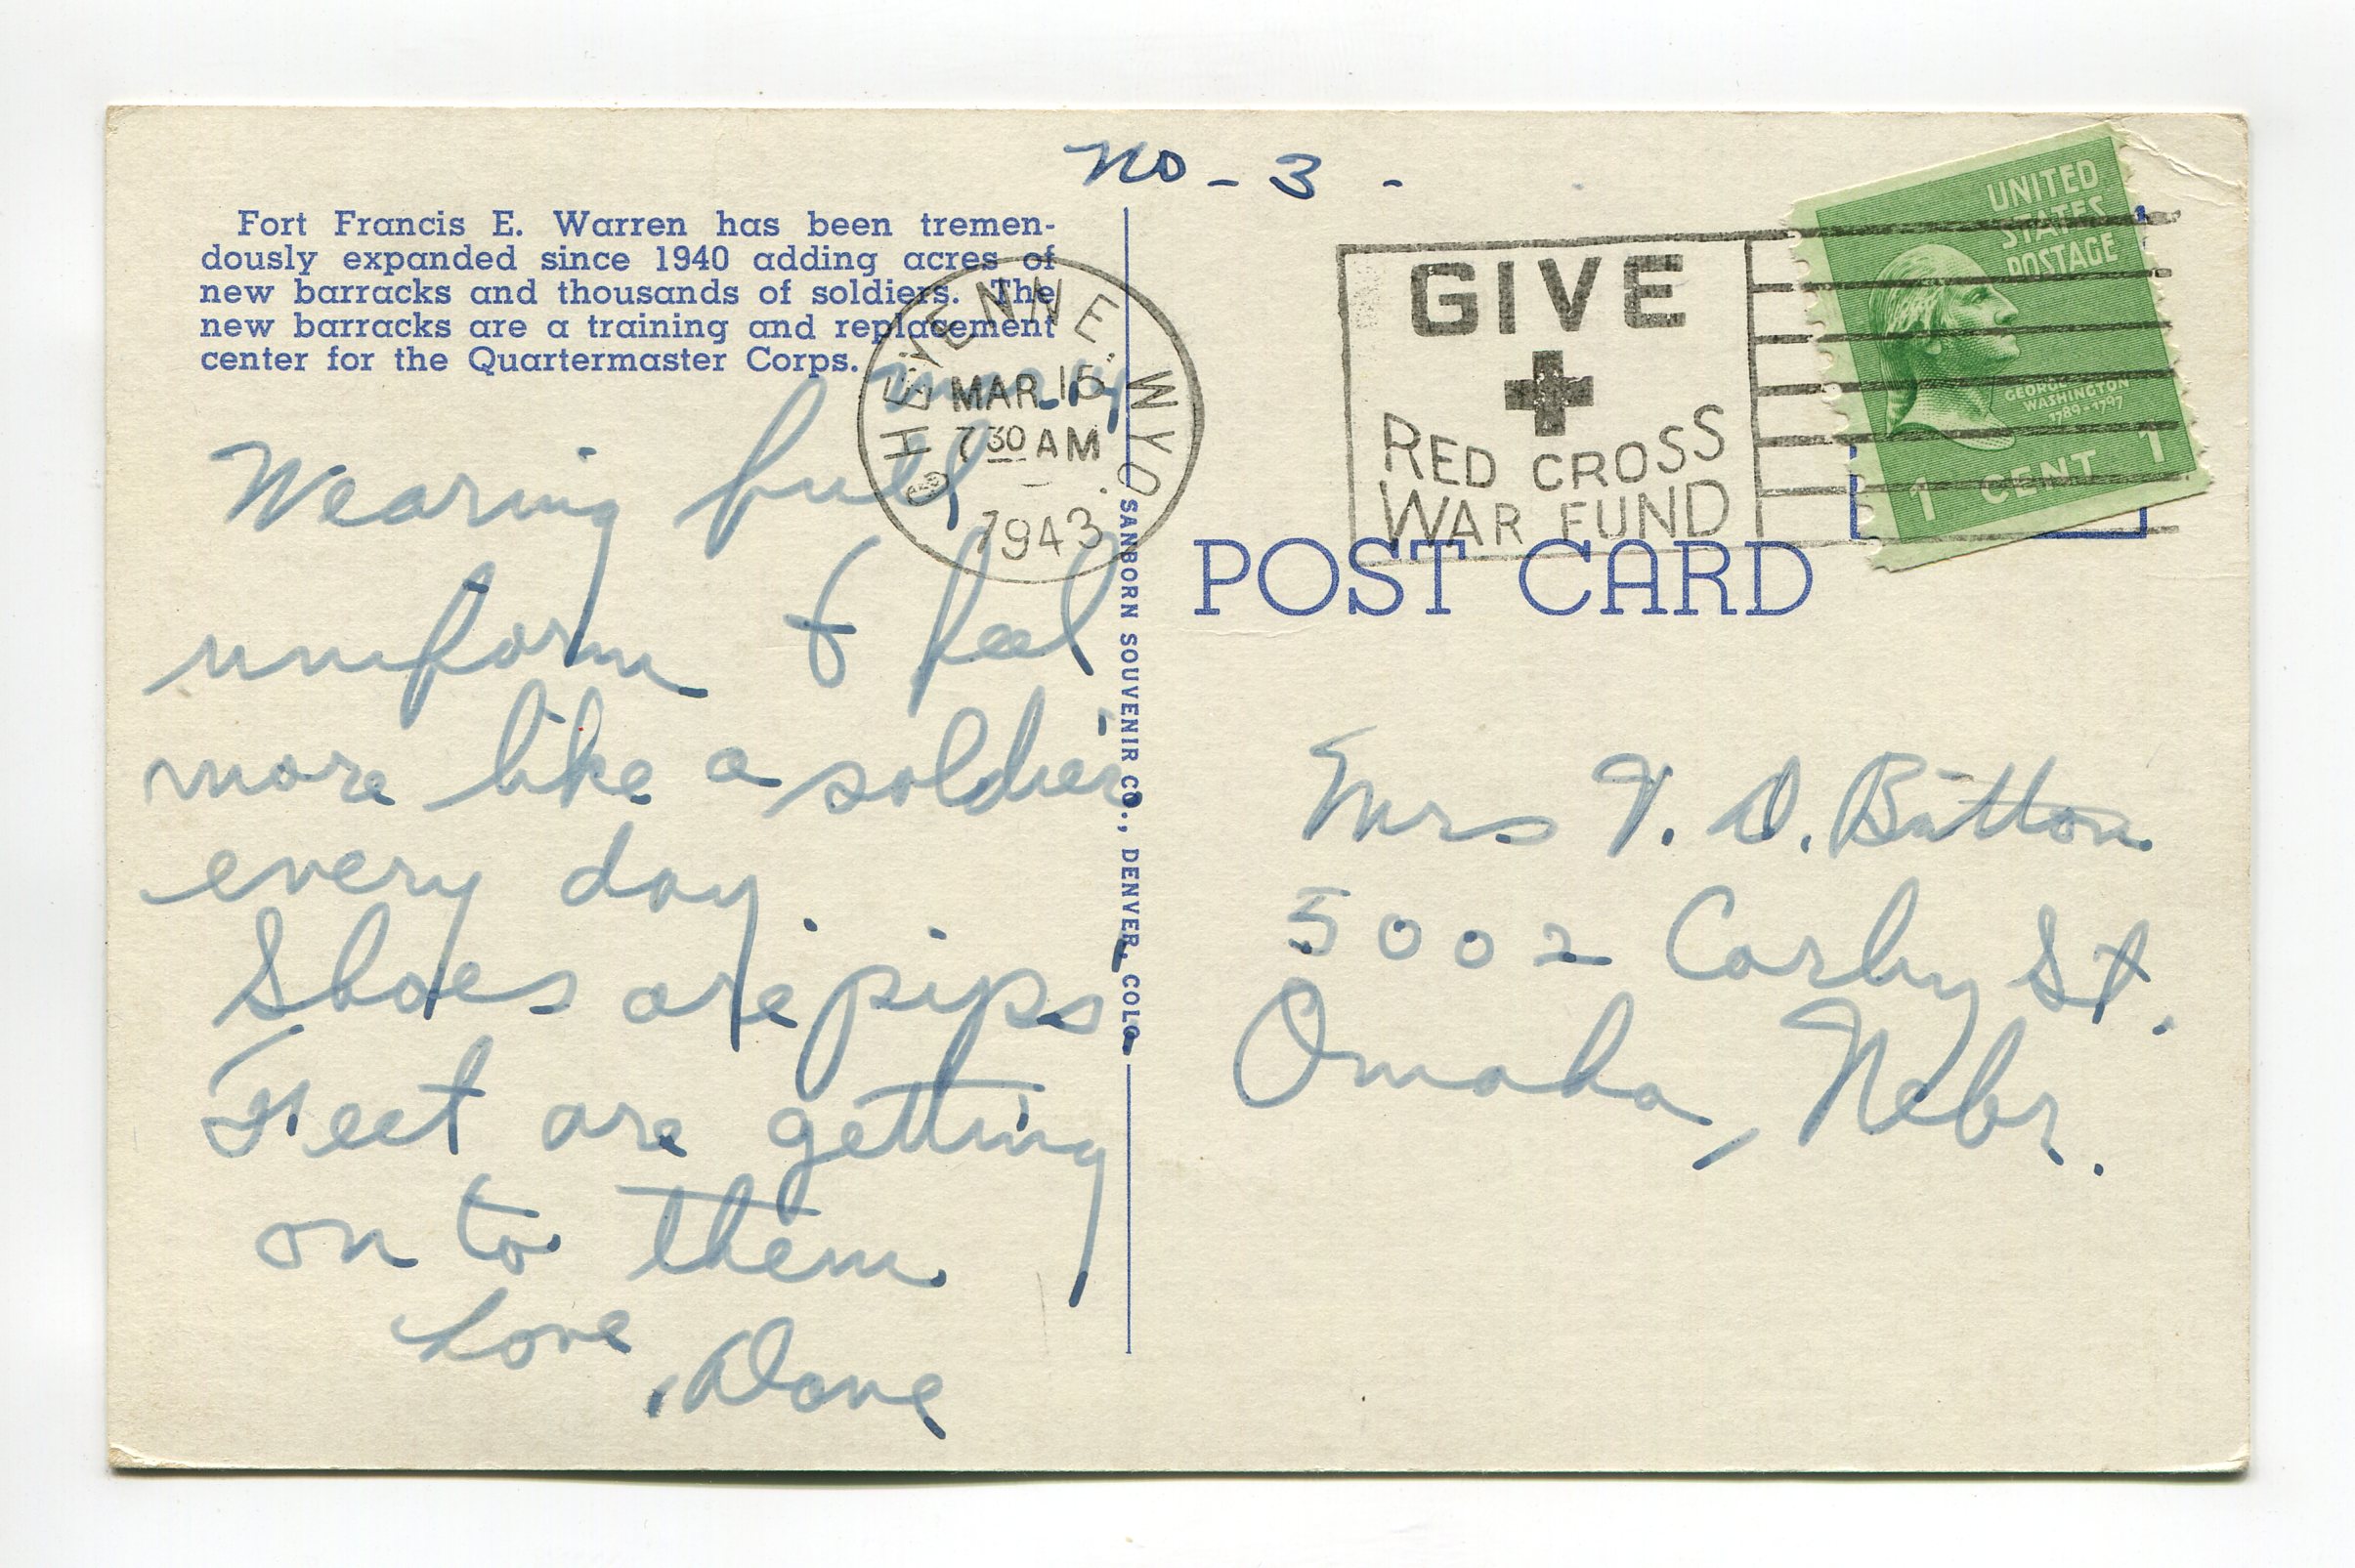 no - 3 -
Fort Francis E. Warren has been tremen-
dously expanded since 1940 adding acres of
new barracks and thousands of soldiers. The
new barracks are a training and replacement
center for the Quartermaster Corps.
CHEYENNE. WYO.
MAR 15
7 30 AM
1943
GIVE
RED CROSS
WAR FUND
UNITED
STATES
POSTAGE
GEORGE
WASHINGTON
1789-1797
1 CENT 1
POST CARD
SANBORN SOUVENIR CO., DENVER, COLO.
Wearing full
uniform & feel
more like a soldier
every day.
Shoes are pips
Feet are getting
on to them.
Love
Dave
Mrs D. Button
5002 Corby St.
Omaha, Nebr.